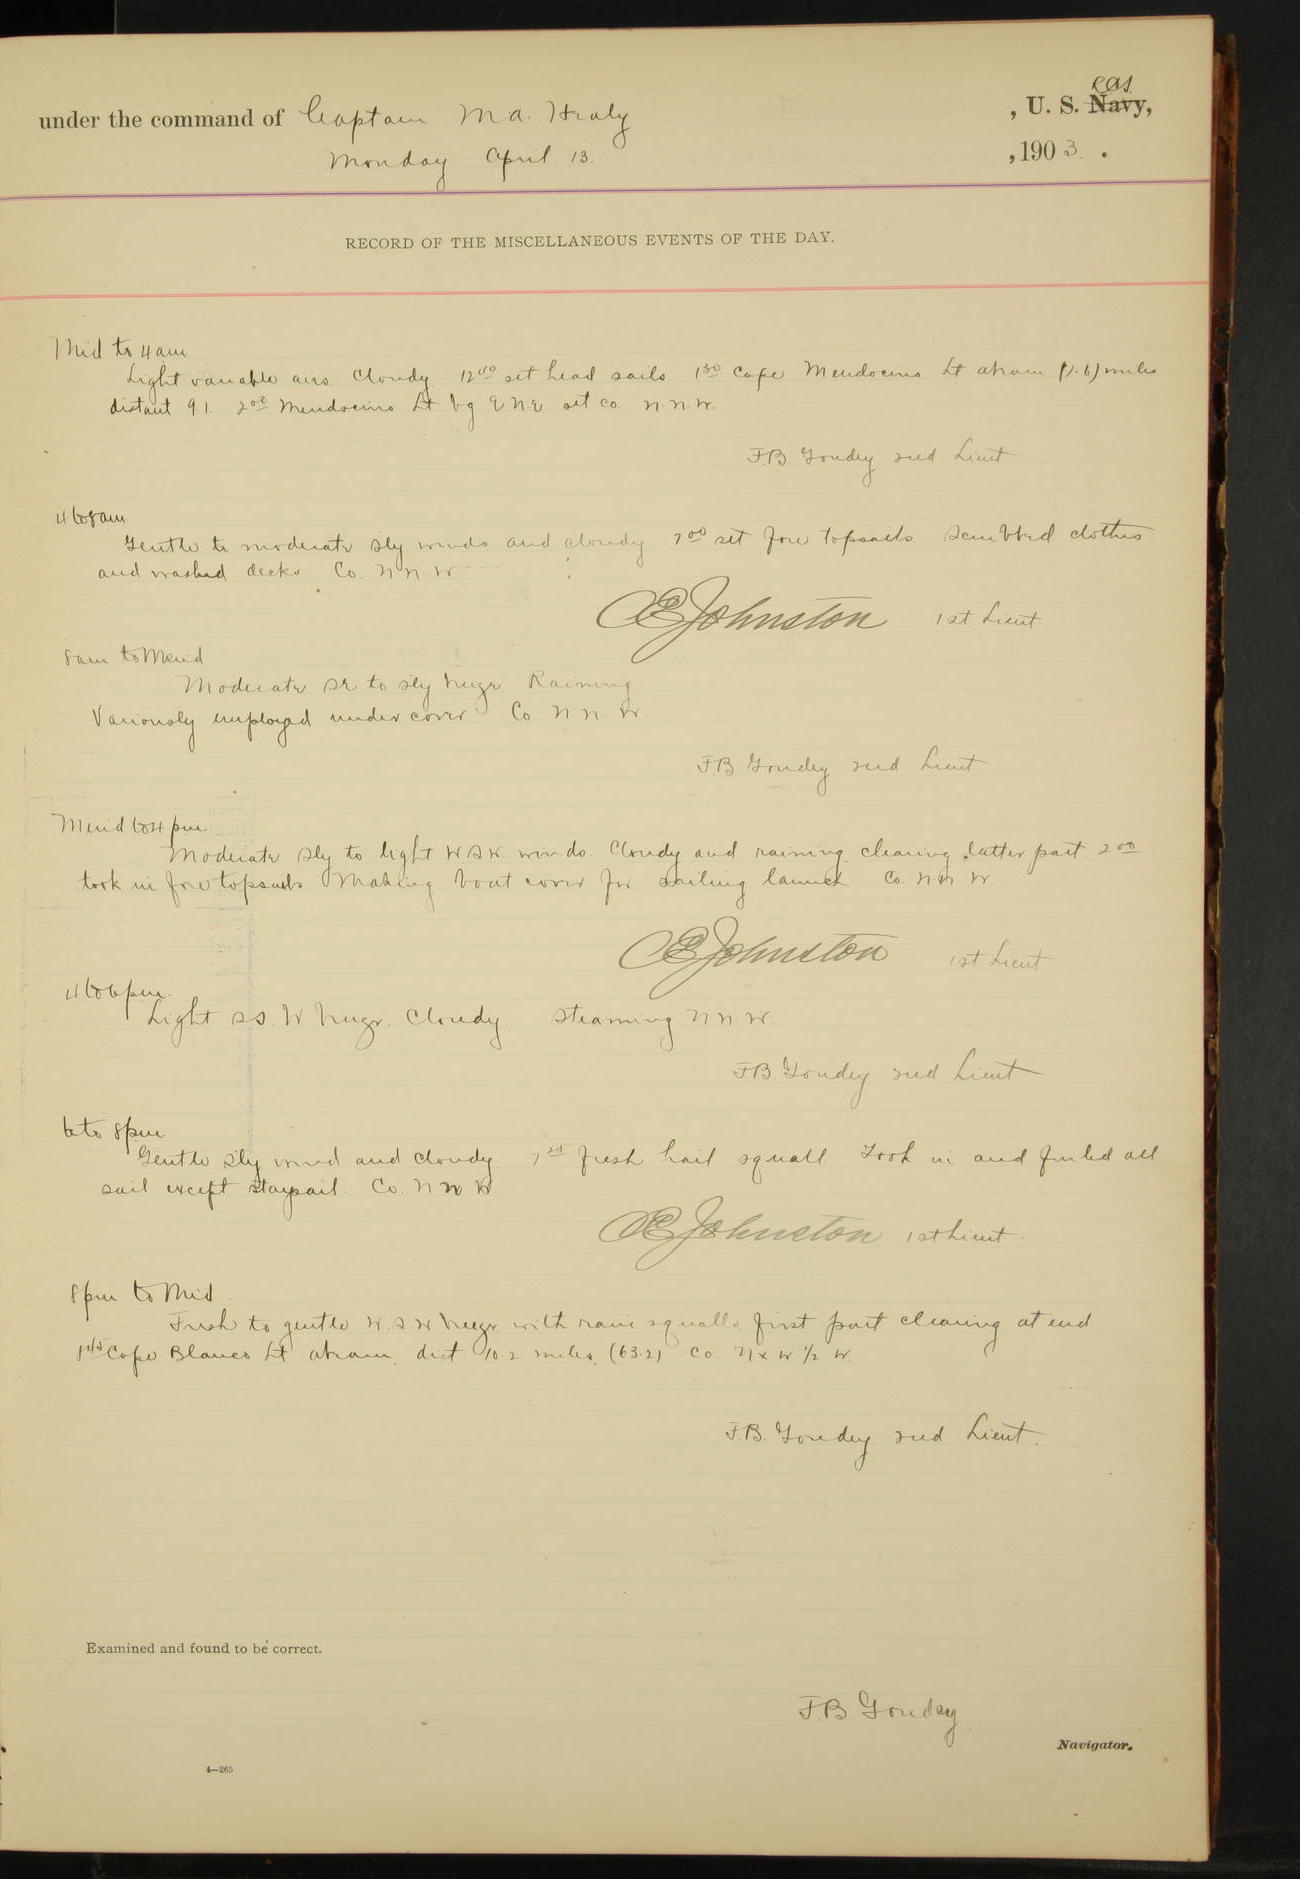 under the command of Captain M A. Healy , U. S. Navy, RCS
Monday April 13. , 190 3. .
RECORD OF THE MISCELLANEOUS EVENTS OF THE DAY.
Mid to 4 am
Light variable airs. Cloudy 12 40 set head sails 1 30 Cape Mendocino Lt abeam miles
distant 9.1. 2 00 Mendocino Lt. bg E N E set co. N. N. W.
F.B. Goudey 2nd Lieut
4 to 8 am
Gentle to moderate Sly winds and cloudy 7 00 set fore topsails. Scrubbed clothes
and washed decks. Co. N. N. W
CE Johnston 1st Lieut.
8 am to Merid
Moderate SE to Sly breeze Raining
Variously employed under cover Co N. N. W.
F.B Goudey 2nd Lieut
Merid to 4 pm.
Moderate Sly to light W.S.W. winds. Cloudy and raining, clearing latter part 2 00
took in fore topsails. Making boat cover for sailing launch. Co. N.N. W.
CE Johnston 1st Lieut
4 to 6 pm.
Light S.S. W breeze. Cloudy Steaming N N. W.
F.B. Goudey 2nd Lieut
6 to 8 pm
Gentle Sly wind and cloudy. 7 25 fresh hail squall Took in and furled all
sail except staysail. Co. N N W
CE Johnston 1st Lieut.
8 pm to Mid.
Fresh to gentle W.S.W breeze with rain squalls first part clearing at end
8 45 Cape Blanco Lt abeam, dist. 10.2 miles, (63.2) Co. N x W 1/2 W.
F.B. Goudey 2nd Lieut.
Examined and found to be correct.
F.B. Goudey
Navigator.
4—265